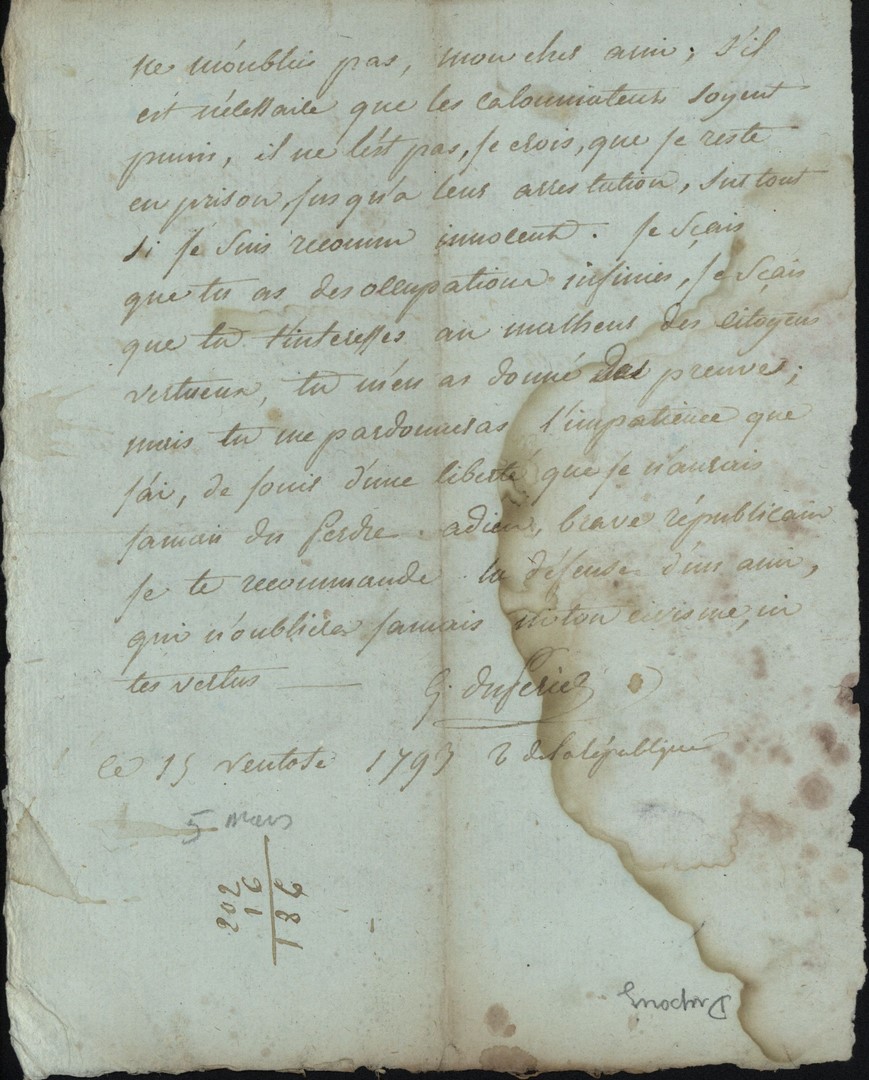 ne m'oublie pas, mon cher ami; s'il
est nécessaire que les calomniateurs soyent
punis, il ne l'est pas, je crois, que je reste
en prison, jusqu'à leur arrestation, surtout
si je suis reconnu innocent. je sçais
que tu as des occupations infinies, je sçais
que tu t'interesses au malheur des citoyens
vertueux, tu m'en as donné des preuves;
mais tu me pardonneras l'impatience que
j'ai, de jouir d'une liberté que je n'aurais
jamais du perdre. adieu, brave républicain
je te recommande la défense d'un ami,
qui n'oubliera jamais ni ton civisme, ni
tes vertus
G.
le 15 ventose 1793 2 de la république
5 mars
202
16
186